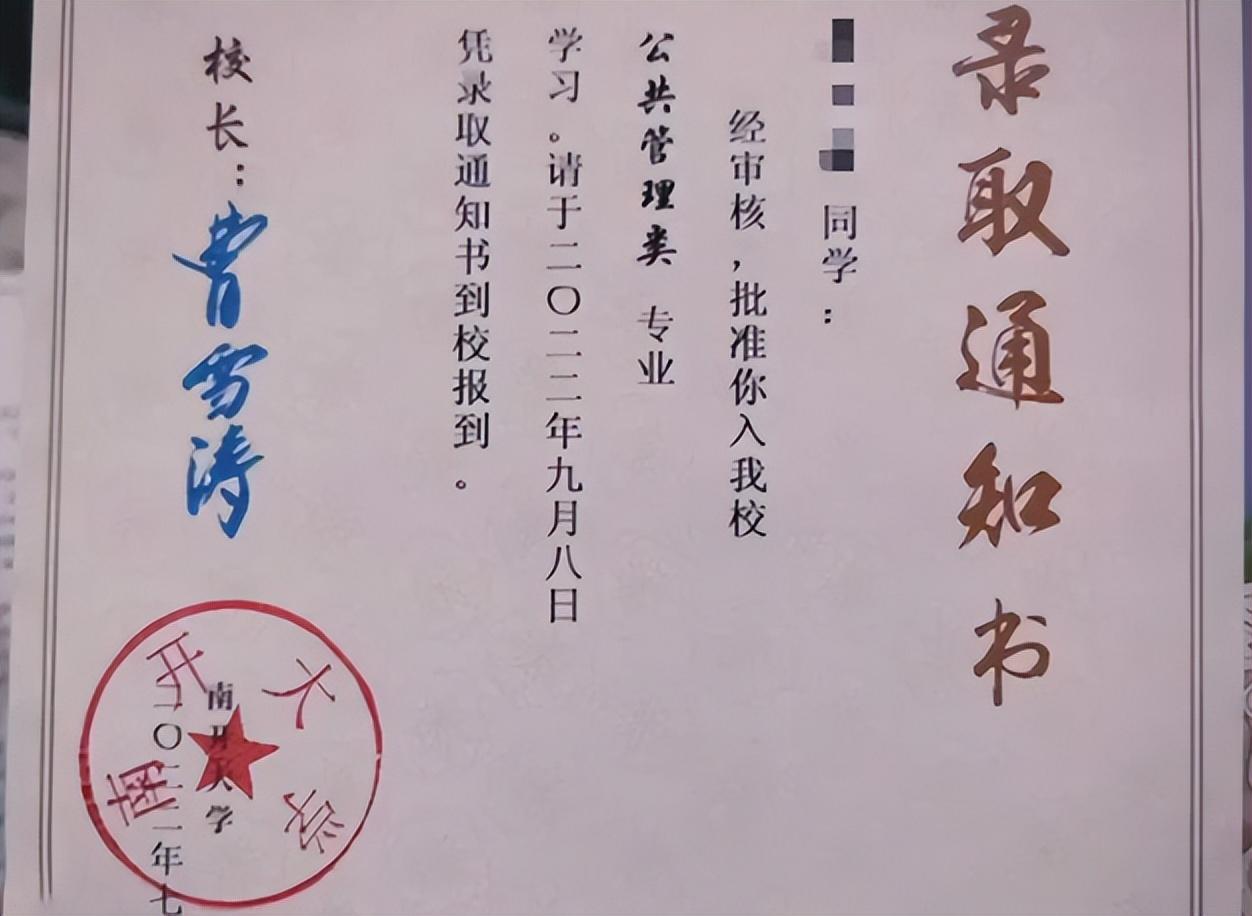 录取通知书
同学：
经审核，批准你入我校
公共管理类 专业
学习。请于二〇二二年九月八日
凭录取通知书到校报到。
校长：曹雪涛
南开大学
二〇二二年七
南开大学